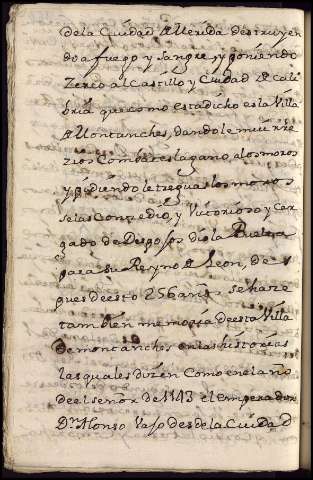 de la Ciudad de Merida destruyen
do a fuego y sangre, y poniendo
Zerco al Castillo y Ciudad de Cali
bria que como esta dicho es la Villa
de Montanches, dandole mui re
zios Combates la gano a los moros
y pidiendole treguas los moros
se las Conzedio, y Victorioso y Car
gado de Despojos dio la Buelta
para su Reyno de Leon, des
pues de esto 256 años se haze
tambien memoria de esta Villa
de montanches en las historias
las quales dizen Como en el año
de el señor de 1143 el emperador
Dn. Alonso bajo desde la Ciudad d